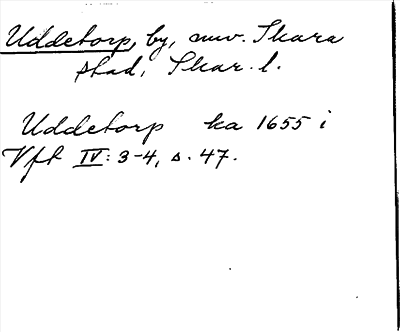 Uddetorp, by, nuv. Skara
stad, Skar. l.
Uddetorp ka 1655 i
Vft IV: 3-4, s. 47.